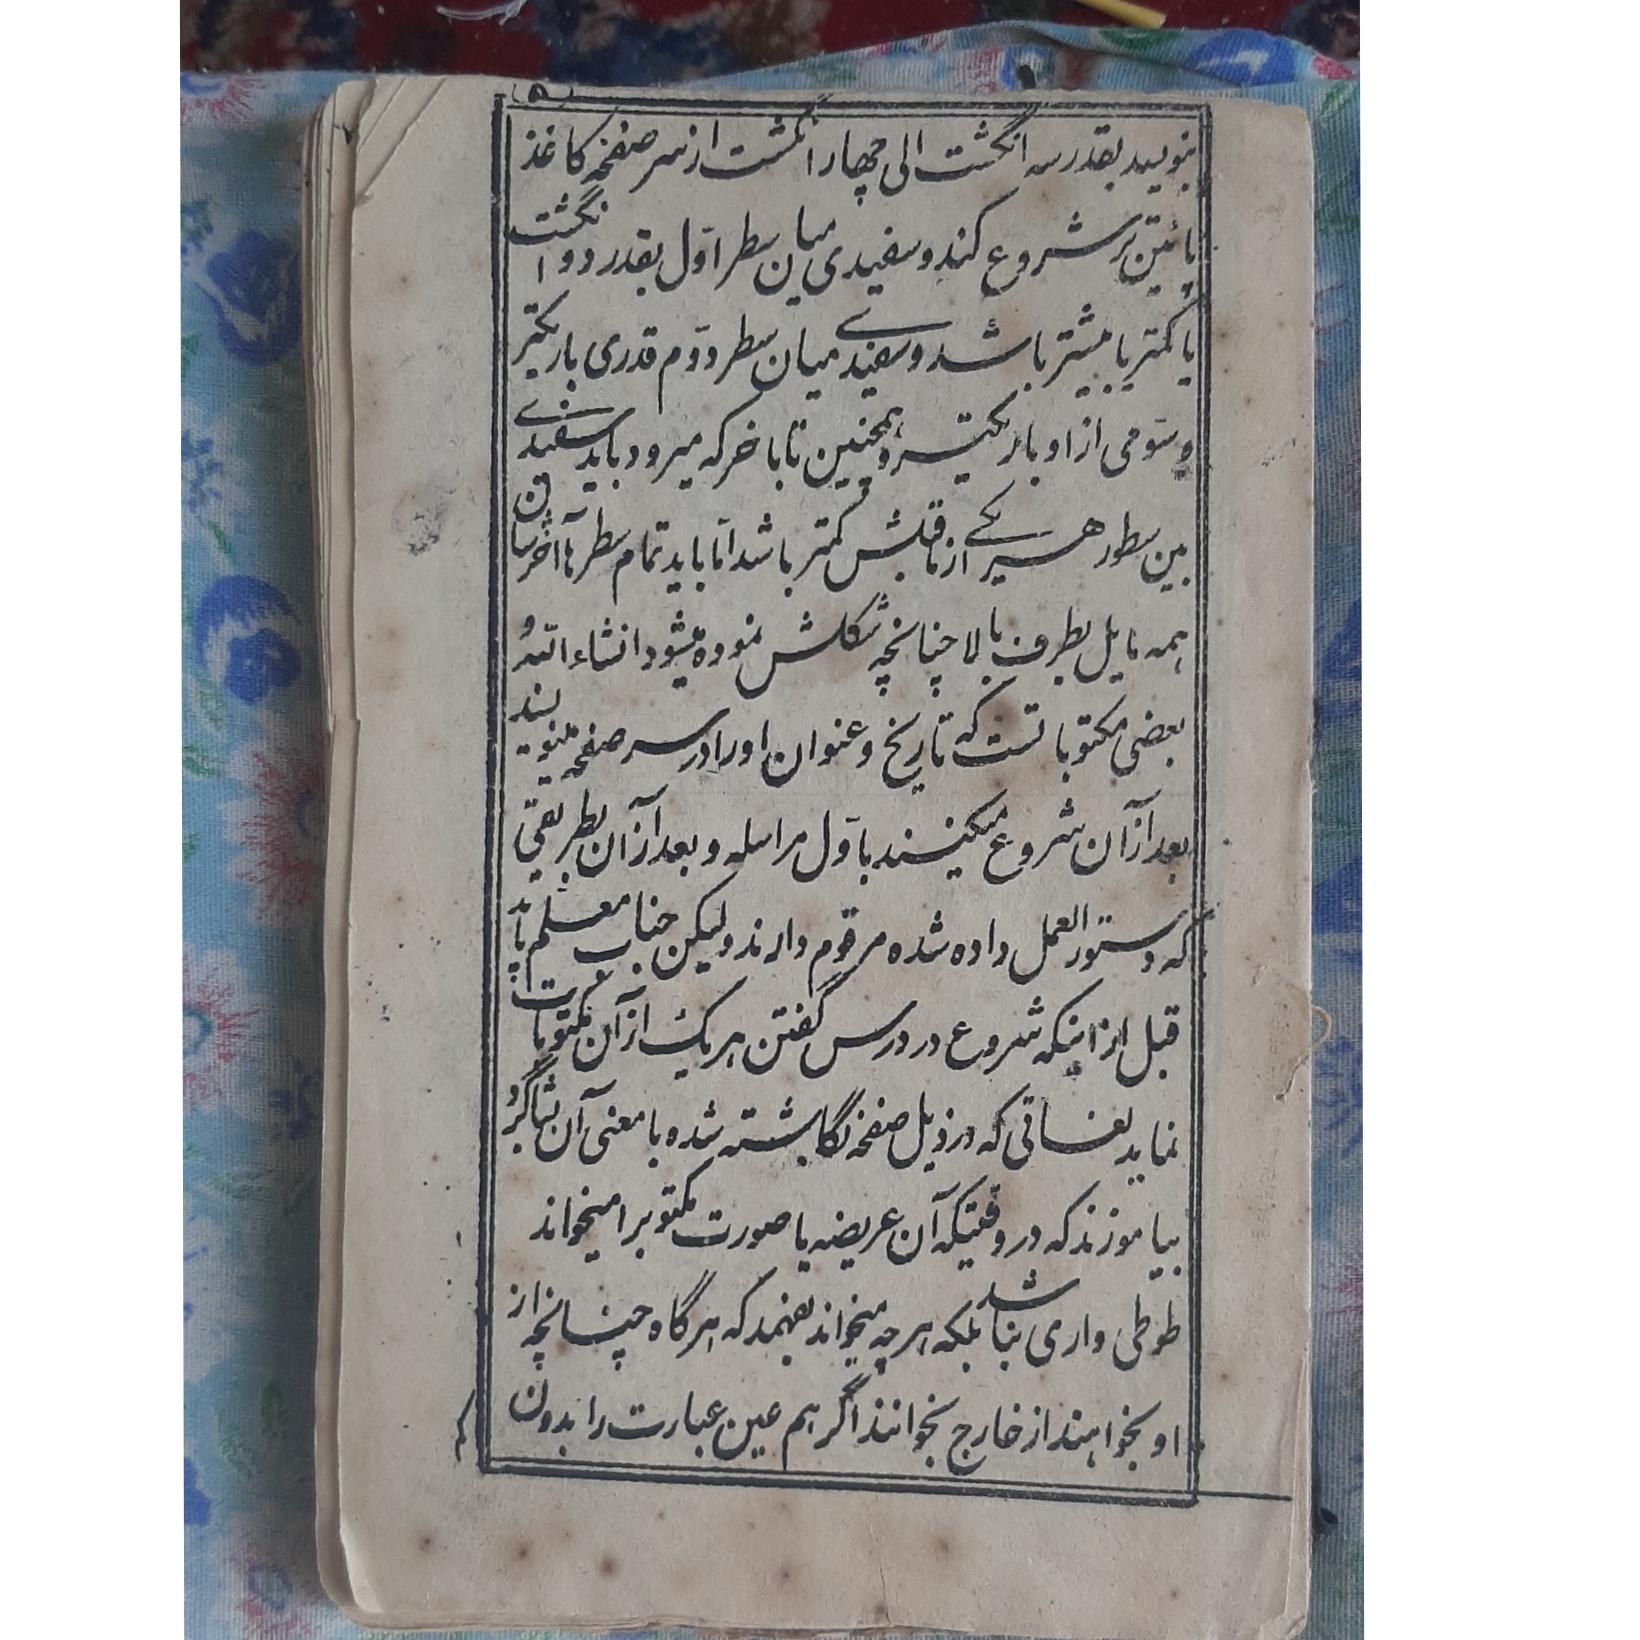 ۵
بنویسد بقدر سه انگشت الی چهار انگشت از سر صفحه کاغذ
پائین تر شروع کند و سفیدی میان سطر اوّل بقدر دو انگشت
یا کمتر یا بیشتر باشد و سفیدی میان سطر دوّم قدری باریکتر
و سوّمی از او باریکتر و همچنین تا بآخر که میرود باید سفیدی
بین سطور هر یکی از ماقبلش کمتر باشد امّا باید تمام سطرها آخرشان
همه مایل بطرف بالا چنانچه شکلش نموده میشود انشاء الله و
بعضی مکتوباتست که تاریخ و عنوان او را در سر صفحه مینویسند
بعد از آن شروع میکنند باوّل مراسله و بعد از آن بطریقی
که دستور العمل داده شده مرقوم دارند ولیکن جناب معلّم باید
قبل از اینکه شروع در درس گفتن هر یک از آن مکتوبات
نماید لغاتی که در ذیل صفحه نگاشته شده با معنی آن بشاگرد
بیاموزند که در وقتیکه آن عریضه یا صورت مکتوبرا میخواند
طوطی واری نباشد بلکه هر چه میخواند بفهمد که هرگاه چنانچه از
او بخواهند از خارج بخوانند اگر هم عین عبارت را بدون